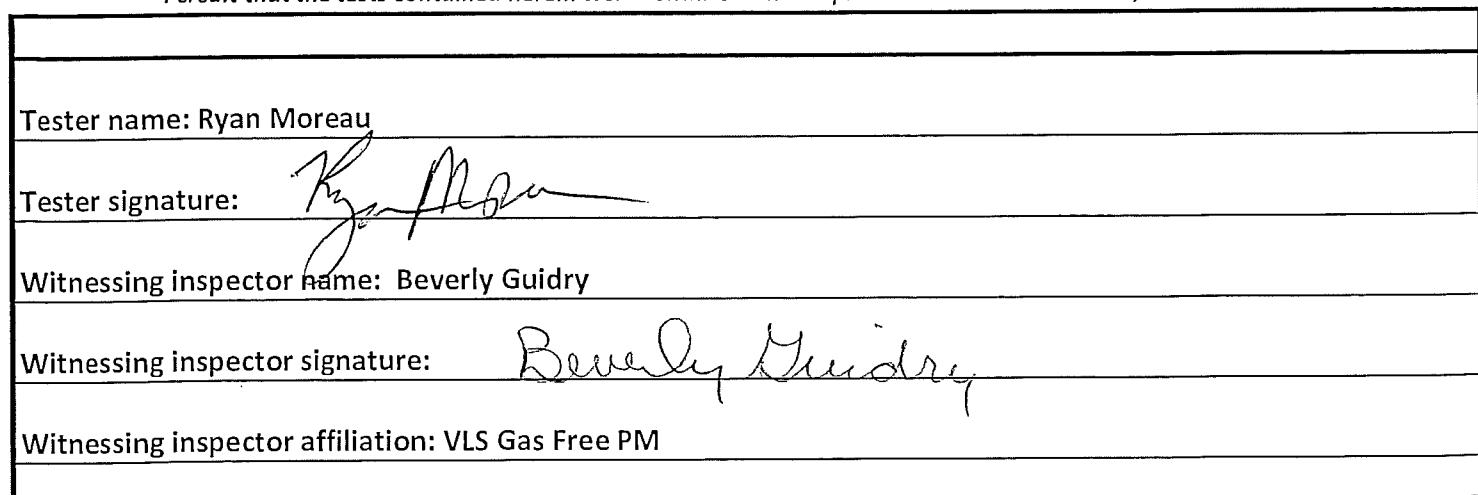 that the tests contained herein were
Tester name: Ryan Moreau
Tester signature: Ryan Moreau
Witnessing inspector name: Beverly Guidry
Witnessing inspector signature: Beverly Guidry
Witnessing inspector affiliation: VLS Gas Free PM